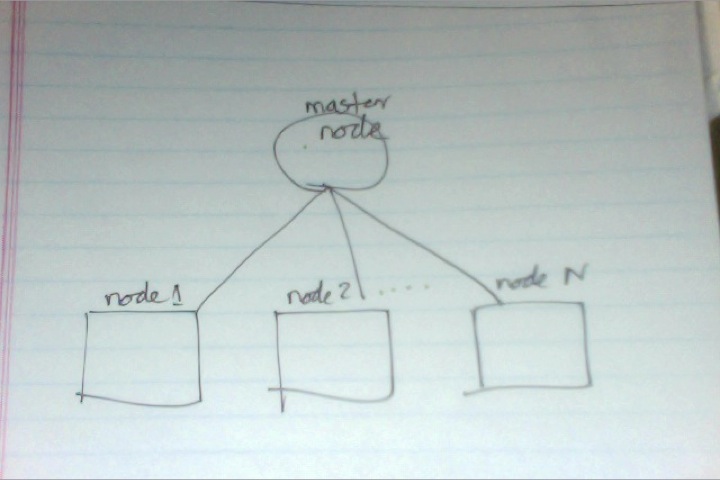 master
node
node 1
node 2 .....
node N